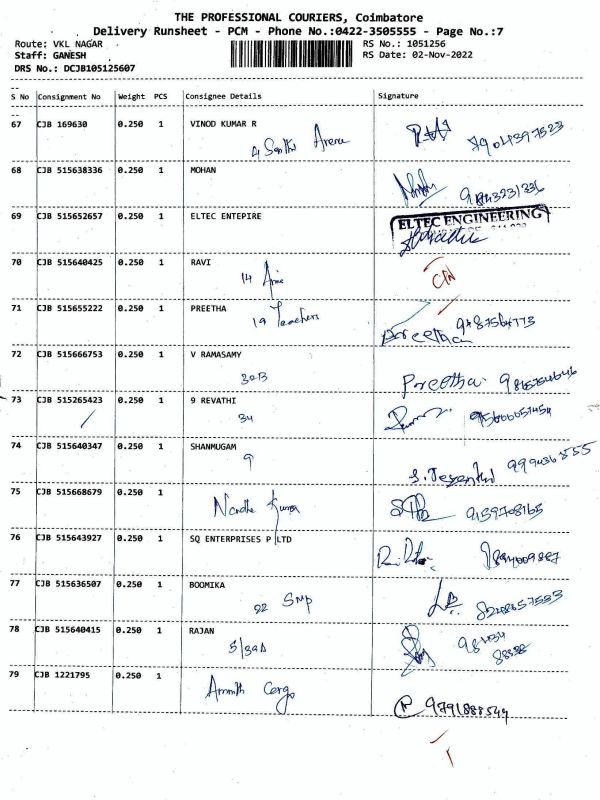 THE PROFESSIONAL COURIERS, Coimbatore
Delivery Runsheet - PCM - Phone No.:0422-3505555 - Page No.:7
Route: VKL NAGAR RS No.: 1051256
Staff: GANESH RS Date: 02-Nov-2022
DRS No.: DCJB105125607
S No Consignment No Weight PCS Consignee Details Signature
67 CJB 169630 0.250 1 VINOD KUMAR R
7904397523
68 CJB 515638336 0.250 1 MOHAN
69 CJB 515652657 0.250 1 ELTEC ENTEPIRE
ELTEC ENGINEERING
70 CJB 515640425 0.250 1 RAVI
14
71 CJB 515655222 0.250 1 PREETHA
19 Teachers Preetha
72 CJB 515666753 0.250 1 V RAMASAMY
Preetha
73 CJB 515265423 0.250 1 9 REVATHI
34
74 CJB 515640347 0.250 1 SHANMUGAM
9
75 CJB 515668679 0.250 1
Nandha Kumar 9159708165
76 CJB 515643927 0.250 1 SQ ENTERPRISES P LTD
77 CJB 515636507 0.250 1 BOOMIKA
92 SMP
78 CJB 515640415 0.250 1 RAJAN
79 CJB 1221795 0.250 1
9791888549